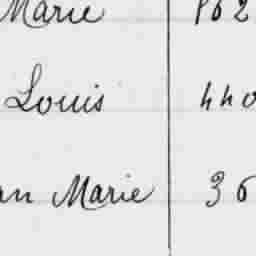 Marie 162
Louis 440
an Marie 36